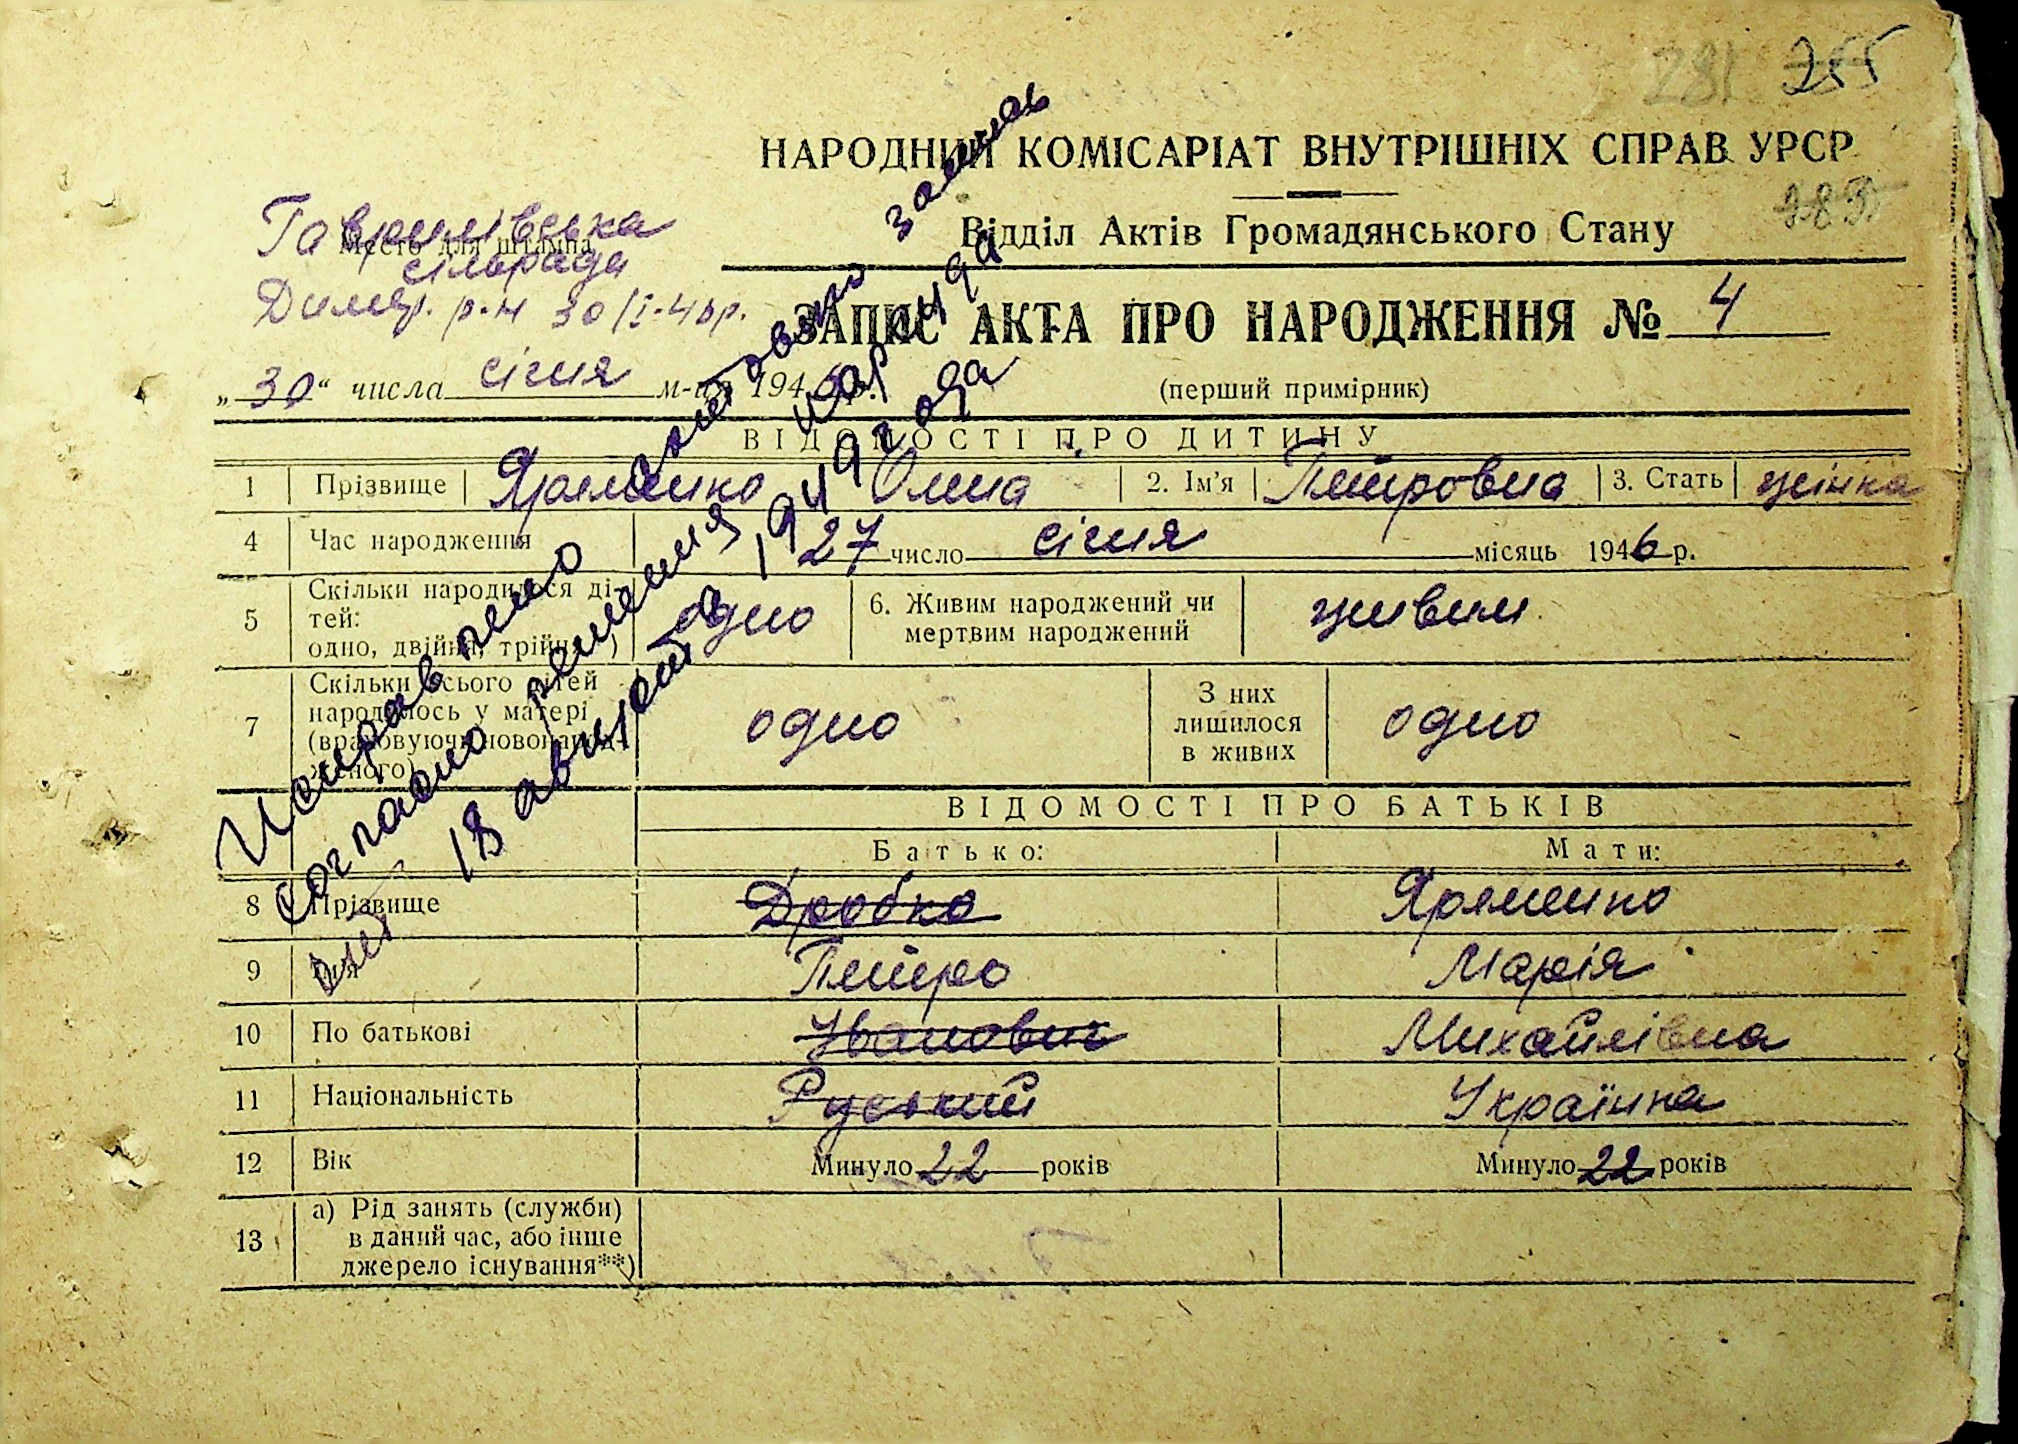 281 255
НАРОДНИЙ КОМІСАРІАТ ВНУТРІШНІХ СПРАВ УРСР
985
Гаврилівська
Место для штампа
сільрада
Димер. р-н 30/I-46р.
Відділ Актів Громадянського Стану
ЗАПИС АКТА ПРО НАРОДЖЕННЯ № 4
„30“ числа січня м-ця 1946 р.
(перший примірник)
ВІДОМОСТІ ПРО ДИТИНУ
1 Прізвище Яременко Олна 2. Ім'я Петровна 3. Стать жінка
4 Час народження 27 число січня місяць 1946 р.
5 Скільки народилося ді-
тей:
одно, двійня, трійня одно 6. Живим народжений чи
мертвим народжений живим
7 Скільки всього дітей
народилось у матері
(враховуючи новонарод-
женого) одно З них
лишилося
в живих одно
ВІДОМОСТІ ПРО БАТЬКІВ
Батько: Мати:
8 Прізвище Дробко Яременко
9 Ім'я Петро Марія
10 По батькові Иванович Михайлівна
11 Національність Руський Українка
12 Вік Минуло 22 років Минуло 22 років
13 а) Рід занять (служби)
в даний час, або інше
джерело існування**)
Исправлено
согласно решения
18 августа 1949 года